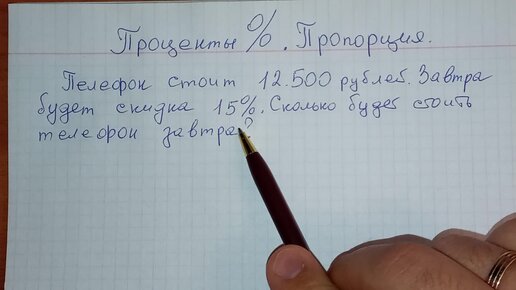 Проценты %. Пропорция.
Телефон стоит 12.500 рублей. Завтра
будет скидка 15%. Сколько будет стоить
телефон завтра?